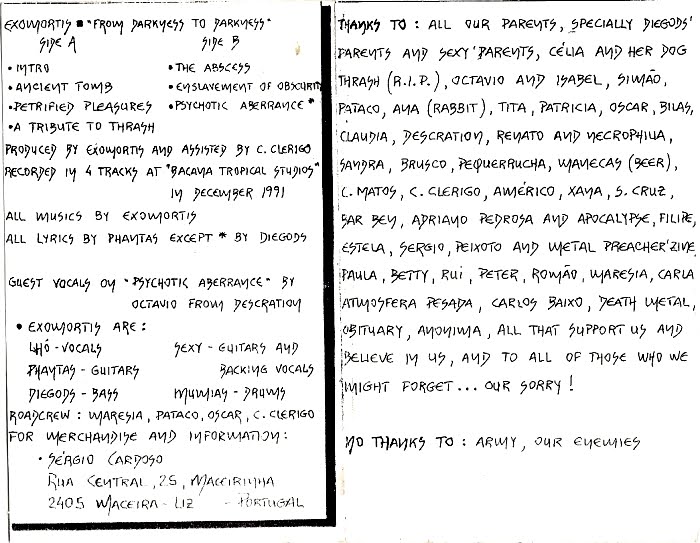 EXOMORTIS ■ "FROM DARKNESS TO DARKNESS"
SIDE A
• INTRO
• ANCIENT TOMB
• PETRIFIED PLEASURES
• A TRIBUTE TO THRASH
SIDE B
• THE ABSCESS
• ENSLAVEMENT OF OBSCURITY
• PSYCHOTIC ABERRANCE *
PRODUCED BY EXOMORTIS AND ASSISTED BY C. CLERIGO
RECORDED IN 4 TRACKS AT "BACANA TROPICAL STUDIOS"
IN DECEMBER 1991
ALL MUSICS BY EXOMORTIS
ALL LYRICS BY PHANTAS EXCEPT * BY DIEGODS
GUEST VOCALS ON "PSYCHOTIC ABERRANCE" BY
OCTAVIO FROM DESCRATION
• EXOMORTIS ARE :
LHÔ - VOCALS
PHANTAS - GUITARS
DIEGODS - BASS
SEXY - GUITARS AND
BACKING VOCALS
MUMIAS - DRUMS
ROADCREW : MARESIA, PATACO, OSCAR, C. CLERIGO
FOR MERCHANDISE AND INFORMATION :
• SÉRGIO CARDOSO
RUA CENTRAL, 25, MACEIRINHA
2405 MACEIRA - LIZ - PORTUGAL
THANKS TO : ALL OUR PARENTS, SPECIALLY DIEGODS'
PARENTS AND SEXY'PARENTS, CÉLIA AND HER DOG
THRASH (R.I.P.), OCTAVIO AND ISABEL, SIMÃO,
PATACO, ANA (RABBIT), TITA, PATRICIA, OSCAR, BILAS,
CLAUDIA, DESCRATION, RENATO AND NECROPHILIA,
SANDRA, BRUSCO, PEQUERRUCHA, MANECAS (BEER),
C. MATOS, C. CLERIGO, AMÉRICO, XANA, S. CRUZ,
BAR BEN, ADRIANO PEDROSA AND APOCALYPSE, FILIPE,
ESTELA, SERGIO, PEIXOTO AND METAL PREACHER'ZINE,
PAULA, BETTY, RUI, PETER, ROMÃO, MARESIA, CARLA
ATMOSFERA PESADA, CARLOS BAIXO, DEATH METAL,
OBITUARY, ANONIMA, ALL THAT SUPPORT US AND
BELIEVE IN US, AND TO ALL OF THOSE WHO WE
MIGHT FORGET... OUR SORRY !
NO THANKS TO : ARMY, OUR ENEMIES